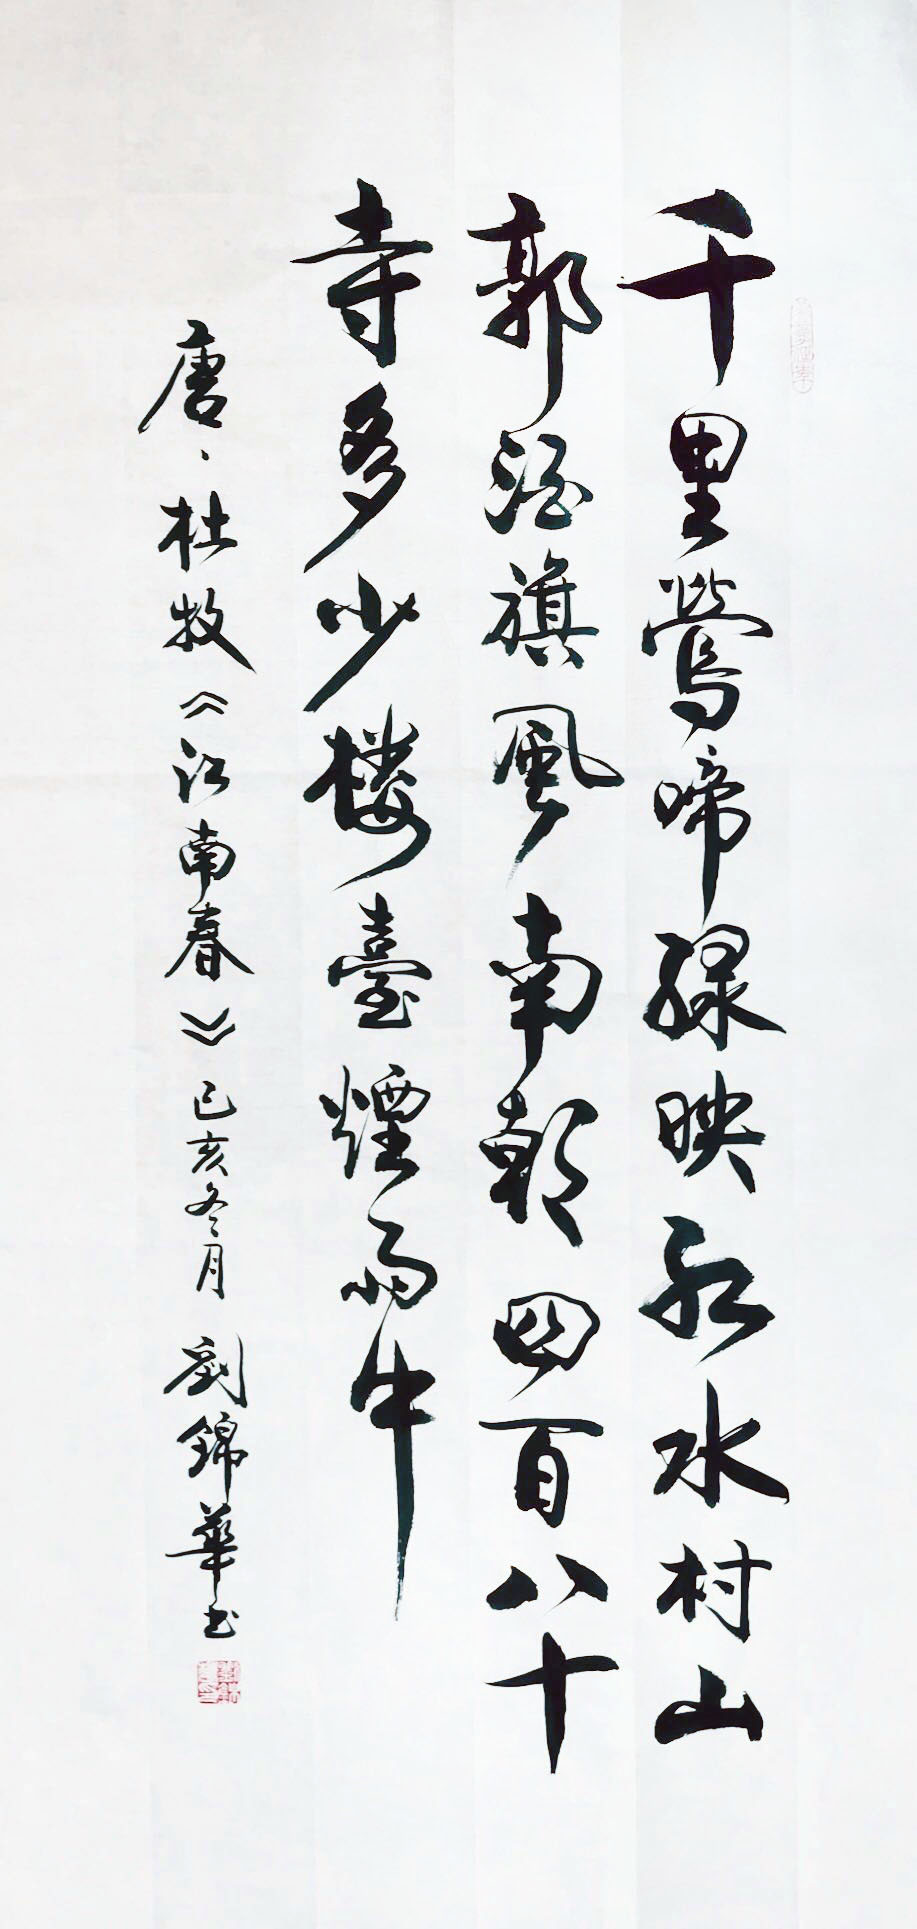 千里鶯啼緑映紅水村山
郭酒旗風南朝四百八十
寺多少楼臺煙雨中
唐、杜牧《江南春》己亥冬月 劉錦華书